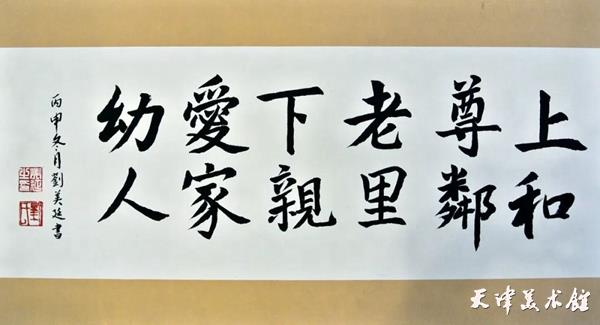 上尊老下愛幼
和鄰里親家人
丙申冬月劉美廷書
天津美术馆